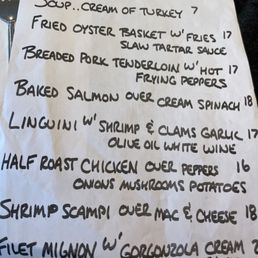 SOUP..CREAM OF TURKEY 7
FRIED OYSTER BASKET W/ FRIES 17
SLAW TARTAR SAUCE
BREADED PORK TENDERLOIN W/ HOT 17
FRYING PEPPERS
BAKED SALMON OVER CREAM SPINACH 18
LINGUINI W/ SHRIMP & CLAMS GARLIC 17
OLIVE OIL WHITE WINE
HALF ROAST CHICKEN OVER PEPPERS 16
ONIONS MUSHROOMS POTATOES
SHRIMP SCAMPI OVER MAC & CHEESE 18
FILET MIGNON W/ GORGONZOLA CREAM